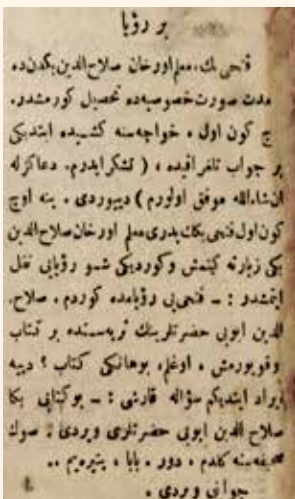 بر رؤيا
فتحى بك، معلم اورخان صلاح الدين بكدن ده
مدت صورت خصوصيه ده تحصيل كورمشدر.
چ كون اول ، خواجه سنه كشيده ايتديكى
بر جواب تلغرافيده ، ( تشكر ايدرم. دعاكزله
ان شاءالله موفق اولورم ) دييوردى . ينه اوچ
كون اول فتحى بكك پدرى معلم اورخان صلاح الدين
بكى زيارته كيتمش وكورديكى شو رؤيايى نقل
ايتمشدر : ـ فتحى يى رؤيامده كوردم . صلاح.
الدين ايوبى حضرتلرينك تربه سنده بر كتاب
وقويورمش . اوغلم بو هانكى كتاب ؟ دييه
ايراد ايتديكم سؤاله قارشى : ـ بو كتابى بكا
صلاح الدين ايوبى حضرتلرى ويردى . صوك
صحيفه سنه كلدم ، دور ، بابا ، بيتيره يم ..
جوابنى ويردى .